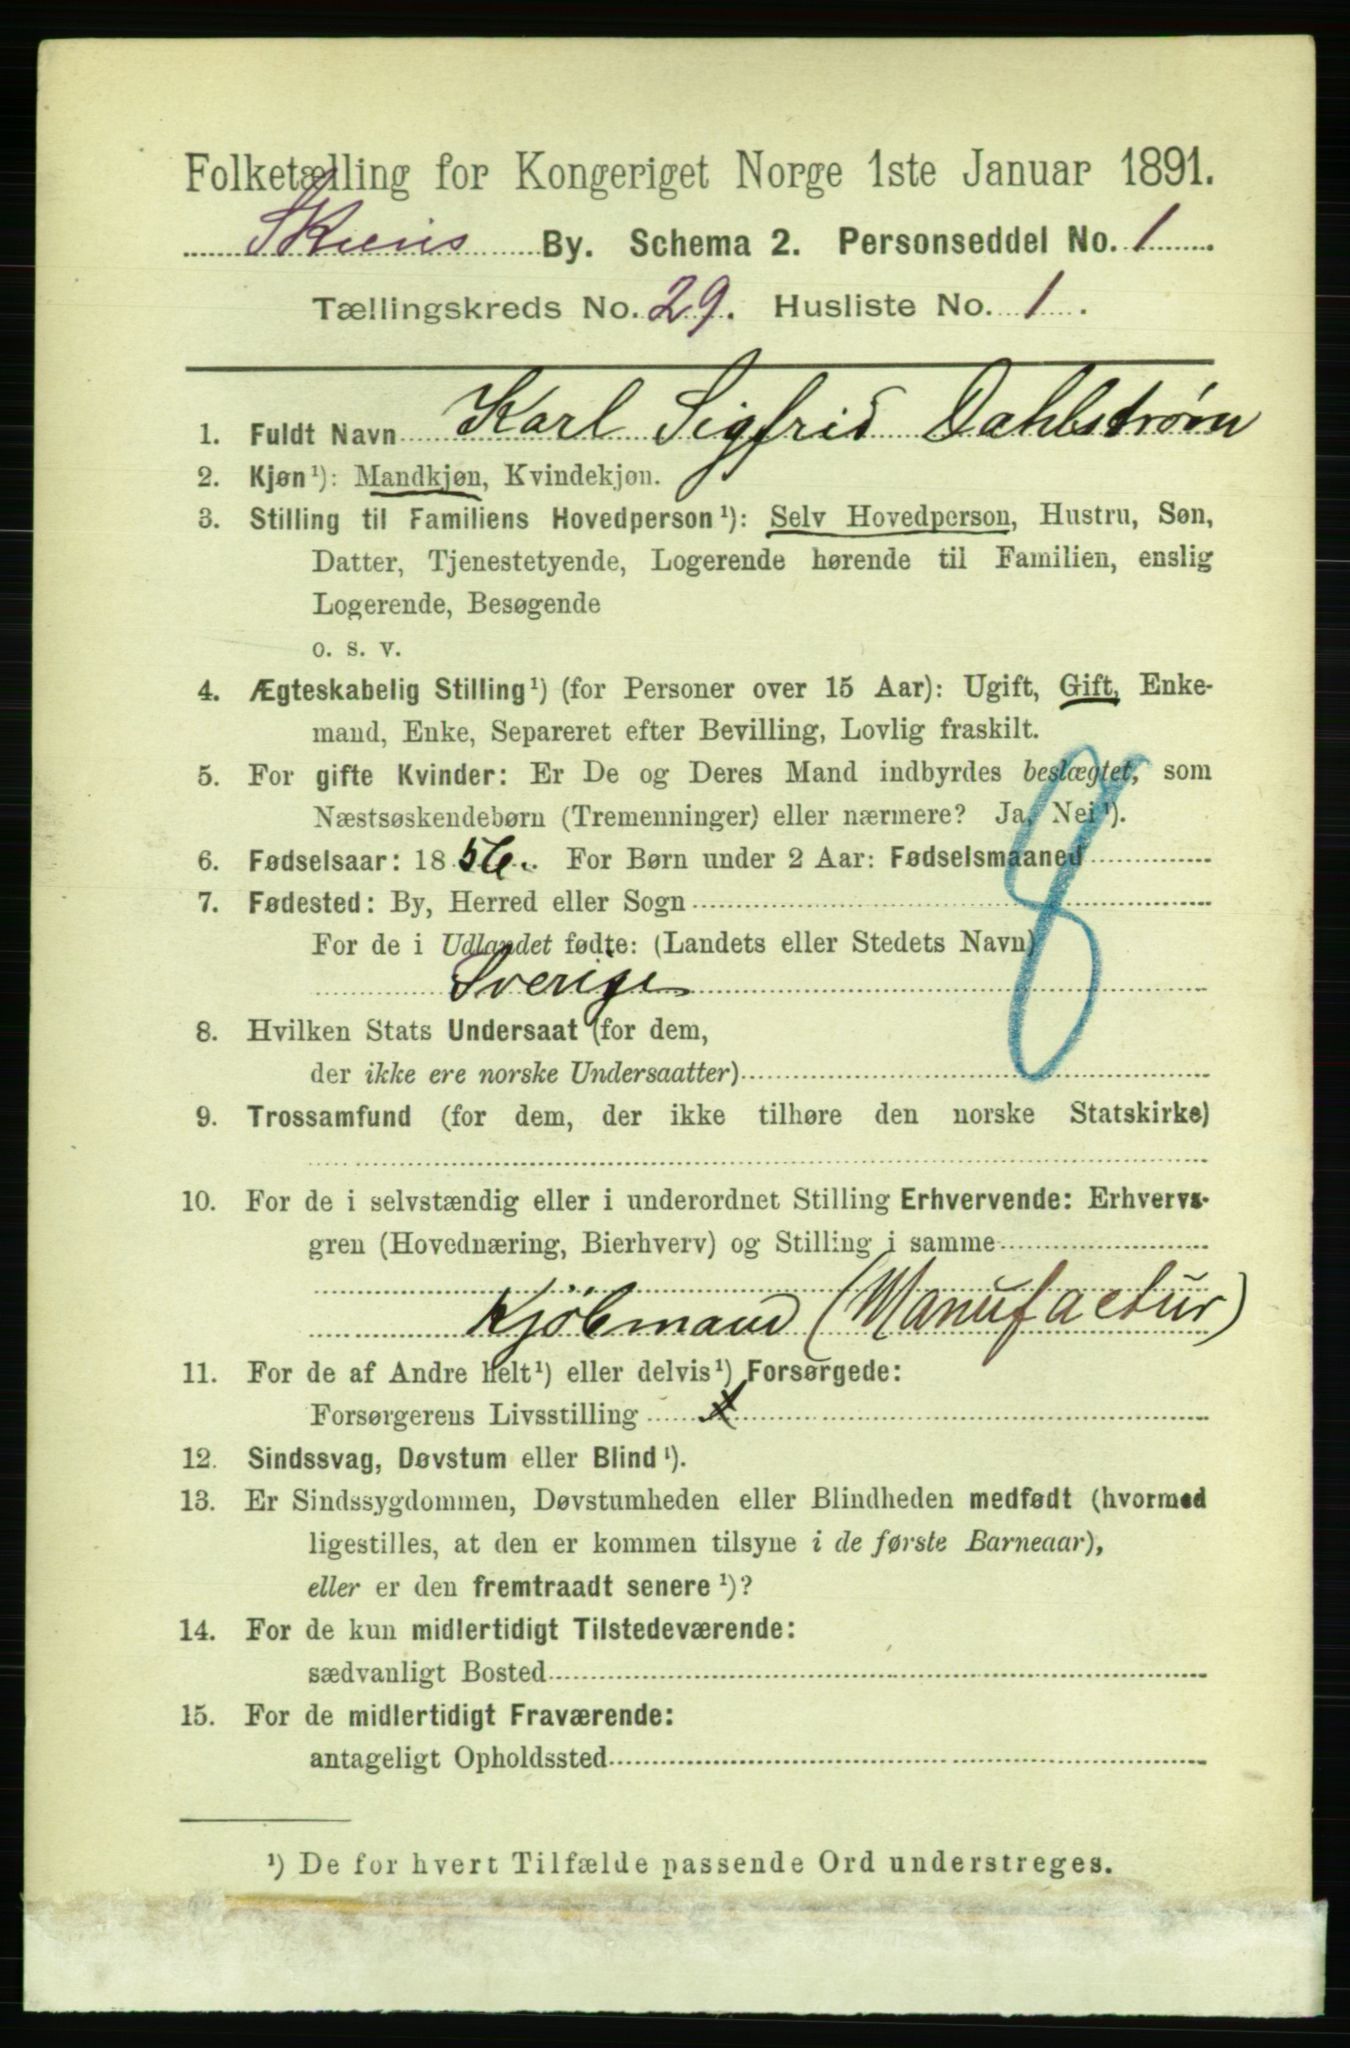 Folketælling for Kongeriget Norge 1ste Januar 1891.
Skiens By. Schema 2. Personseddel No. 1
Tællingskreds No. 29. Husliste No. 1.
1. Fuldt Navn Karl Sigfrid Dahlstrøm
2. Kjøn¹): Mandkjøn, Kvindekjøn.
3. Stilling til Familiens Hovedperson¹): Selv Hovedperson, Hustru, Søn,
Datter, Tjenestetyende, Logerende hørende til Familien, enslig
Logerende, Besøgende
o. s. v.
4. Ægteskabelig Stilling¹) (for Personer over 15 Aar): Ugift, Gift, Enke-
mand, Enke, Separeret efter Bevilling, Lovlig fraskilt.
5. For gifte Kvinder: Er De og Deres Mand indbyrdes beslægtet, som
Næstsøskendebørn (Tremenninger) eller nærmere? Ja, Nei¹).
6. Fødselsaar: 1856. For Børn under 2 Aar: Fødselsmaaned
7. Fødested: By, Herred eller Sogn
For de i Udlandet fødte: (Landets eller Stedets Navn)
Sverige
8
8. Hvilken Stats Undersaat (for dem,
der ikke ere norske Undersaatter)
9. Trossamfund (for dem, der ikke tilhøre den norske Statskirke)
10. For de i selvstændig eller i underordnet Stilling Erhvervende: Erhvervs-
gren (Hovednæring, Bierhverv) og Stilling i samme
Kjöbmand (Manufactur)
11. For de af Andre helt¹) eller delvis¹) Forsørgede:
Forsørgerens Livsstilling x
12. Sindssvag, Døvstum eller Blind¹).
13. Er Sindssygdommen, Døvstumheden eller Blindheden medfødt (hvormed
ligestilles, at den er kommen tilsyne i de første Barneaar),
eller er den fremtraadt senere¹)?
14. For de kun midlertidigt Tilstedeværende:
sædvanligt Bosted
15. For de midlertidigt Fraværende:
antageligt Opholdssted
¹) De for hvert Tilfælde passende Ord understreges.